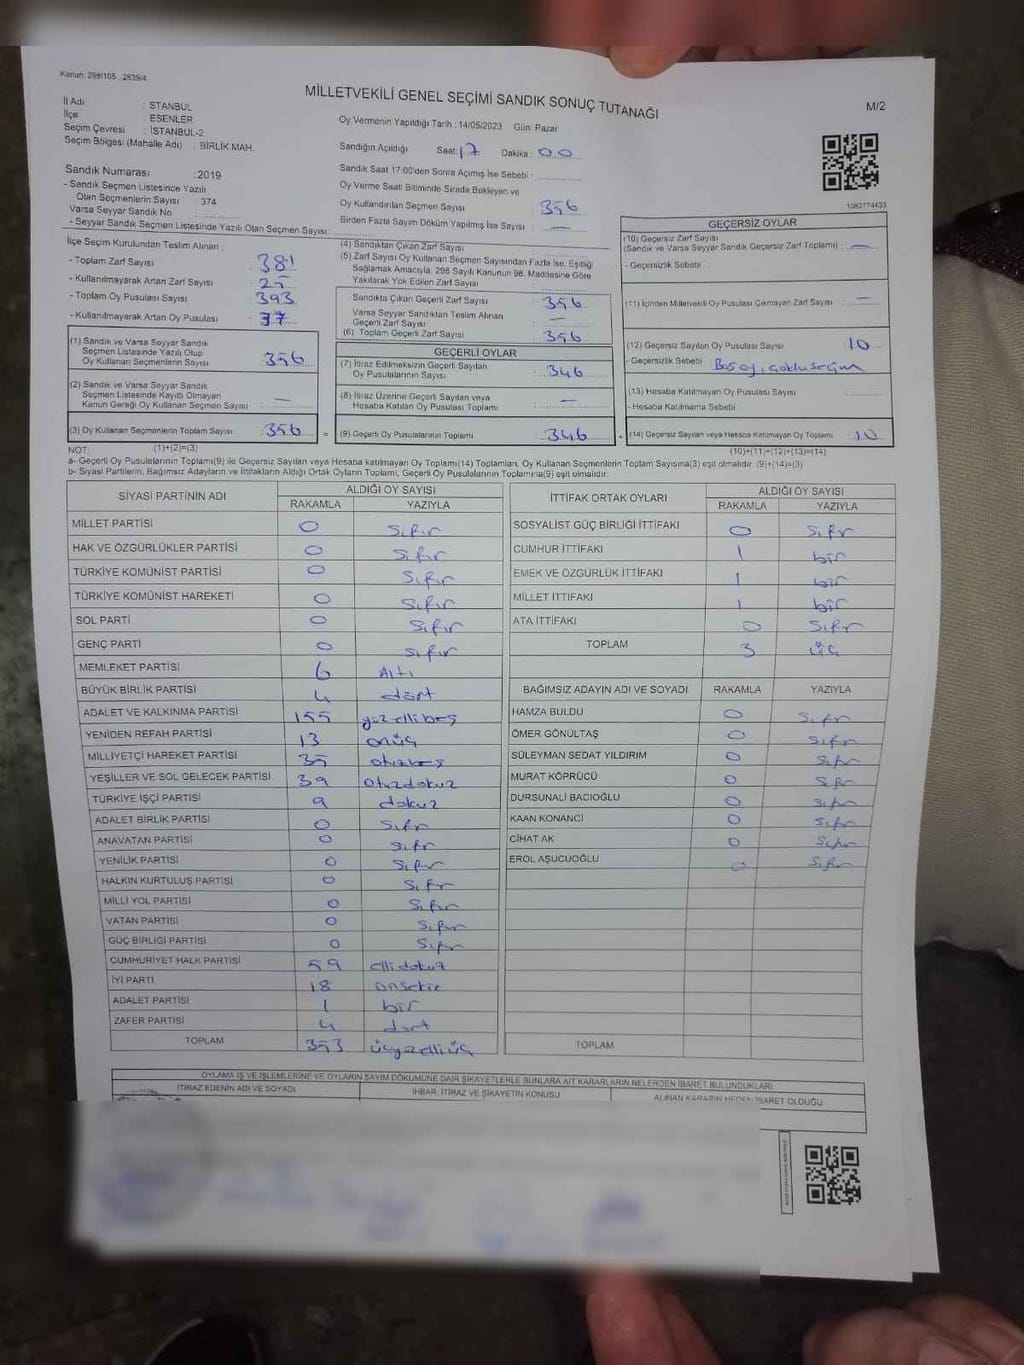 Kanun: 298/105 , 2839/4
MİLLETVEKİLİ GENEL SEÇİMİ SANDIK SONUÇ TUTANAĞI
M/2
İl Adı : STANBUL
İlçe : ESENLER
Seçim Çevresi : İSTANBUL-2
Seçim Bölgesi (Mahalle Adı) : BİRLİK MAH.
Oy Vermenin Yapıldığı Tarih : 14/05/2023 Gün: Pazar
Sandığın Açıldığı Saat: 17 Dakika : 00
Sandık Saat 17:00'den Sonra Açımış İse Sebebi :
Oy Verme Saati Bitiminde Sırada Bekleyen ve
Oy Kullandırılan Seçmen Sayısı : 356
Birden Fazla Sayım Döküm Yapılmış İse Sayısı : —
Sandık Numarası :2019
- Sandık Seçmen Listesinde Yazılı
Olan Seçmenlerin Sayısı : 374
Varsa Seyyar Sandık No :
- Seyyar Sandık Seçmen Listesinde Yazılı Olan Seçmen Sayısı:
1083774433
İlçe Seçim Kurulundan Teslim Alınan :
- Toplam Zarf Sayısı : 381
- Kullanılmayarak Artan Zarf Sayısı : 25
- Toplam Oy Pusulası Sayısı : 393
- Kullanılmayarak Artan Oy Pusulası : 37
(1) Sandık ve Varsa Seyyar Sandık
Seçmen Listesinde Yazılı Olup
Oy Kullanan Seçmenlerin Sayısı : 356
(2) Sandık ve Varsa Seyyar Sandık
Seçmen Listesinde Kayıtlı Olmayan
Kanun Gereği Oy Kullanan Seçmen Sayısı : —
(3) Oy Kullanan Seçmenlerin Toplam Sayısı : 356
(4) Sandıktan Çıkan Zarf Sayısı :
(5) Zarf Sayısı Oy Kullanan Seçmen Sayısından Fazla İse, Eşitliği
Sağlamak Amacıyla, 298 Sayılı Kanunun 98. Maddesine Göre
Yakılarak Yok Edilen Zarf Sayısı :
Sandıkta Çıkan Geçerli Zarf Sayısı : 356
Varsa Seyyar Sandıktan Teslim Alınan
Geçerli Zarf Sayısı : —
(6) Toplam Geçerli Zarf Sayısı : 356
GEÇERLİ OYLAR
(7) İtiraz Edilmeksizin Geçerli Sayılan
Oy Pusulalarının Sayısı : 346
(8) İtiraz Üzerine Geçerli Sayılan veya
Hesaba Katılan Oy Pusulası Toplamı : —
= (9) Geçerli Oy Pusulalarının Toplamı : 346
GEÇERSİZ OYLAR
(10) Geçersiz Zarf Sayısı
(Sandık ve Varsa Seyyar Sandık Geçersiz Zarf Toplamı) : —
- Geçersizlik Sebebi :
(11) İçinden Milletvekili Oy Pusulası Çıkmayan Zarf Sayısı : —
(12) Geçersiz Sayılan Oy Pusulası Sayısı : 10
- Geçersizlik Sebebi : Boş oy, çoklu seçim
(13) Hesaba Katılmayan Oy Pusulası Sayısı :
- Hesaba Katılmama Sebebi
+ (14) Geçersiz Sayılan veya Hesaba Katılmayan Oy Toplamı : 10
NOT: (1)+(2)=(3) (10)+(11)+(12)+(13)=(14)
a- Geçerli Oy Pusulalarının Toplamı(9) ile Geçersiz Sayılan veya Hesaba katılmayan Oy Toplamı(14) Toplamları, Oy Kullanan Seçmenlerin Toplam Sayısına(3) eşit olmalıdır. (9)+(14)=(3)
b- Siyasi Partilerin, Bağımsız Adayların ve İttifakların Aldığı Ortak Oyların Toplamı, Geçerli Oy Pusulalarının Toplamına(9) eşit olmalıdır.
SİYASİ PARTİNİN ADI ALDIĞI OY SAYISI
RAKAMLA YAZIYLA
MİLLET PARTİSİ 0 sıfır
HAK VE ÖZGÜRLÜKLER PARTİSİ 0 sıfır
TÜRKİYE KOMÜNİST PARTİSİ 0 sıfır
TÜRKİYE KOMÜNİST HAREKETİ 0 sıfır
SOL PARTİ 0 sıfır
GENÇ PARTİ 0 sıfır
MEMLEKET PARTİSİ 6 Altı
BÜYÜK BİRLİK PARTİSİ 4 dört
ADALET VE KALKINMA PARTİSİ 155 yüzellibeş
YENİDEN REFAH PARTİSİ 13 onüç
MİLLİYETÇİ HAREKET PARTİSİ 35 otuzbeş
YEŞİLLER VE SOL GELECEK PARTİSİ 39 otuzdokuz
TÜRKİYE İŞÇİ PARTİSİ 9 dokuz
ADALET BİRLİK PARTİSİ 0 sıfır
ANAVATAN PARTİSİ 0 sıfır
YENİLİK PARTİSİ 0 sıfır
HALKIN KURTULUŞ PARTİSİ 0 sıfır
MİLLİ YOL PARTİSİ 0 sıfır
VATAN PARTİSİ 0 sıfır
GÜÇ BİRLİĞİ PARTİSİ 0 sıfır
CUMHURİYET HALK PARTİSİ 59 ellidokuz
İYİ PARTİ 18 onsekiz
ADALET PARTİSİ 1 bir
ZAFER PARTİSİ 4 dört
TOPLAM 353 üçyüzelliüç
İTTİFAK ORTAK OYLARI ALDIĞI OY SAYISI
RAKAMLA YAZIYLA
SOSYALİST GÜÇ BİRLİĞİ İTTİFAKI 0 sıfır
CUMHUR İTTİFAKI 1 bir
EMEK VE ÖZGÜRLÜK İTTİFAKI 1 bir
MİLLET İTTİFAKI 1 bir
ATA İTTİFAKI 0 sıfır
TOPLAM 3 üç
BAĞIMSIZ ADAYIN ADI VE SOYADI RAKAMLA YAZIYLA
HAMZA BULDU 0 sıfır
ÖMER GÖNÜLTAŞ 0 sıfır
SÜLEYMAN SEDAT YILDIRIM 0 sıfır
MURAT KÖPRÜCÜ 0 sıfır
DURSUNALİ BACIOĞLU 0 sıfır
KAAN KONANCİ 0 sıfır
CİHAT AK 0 sıfır
EROL AŞUCUOĞLU 0 sıfır
TOPLAM
OYLAMA İŞ VE İŞLEMLERİNE VE OYLARIN SAYIM DÖKÜMÜNE DAİR ŞİKAYETLERLE BUNLARA AİT KARARLARIN NELERDEN İBARET BULUNDUKLARI
İTİRAZ EDENİN ADI VE SOYADI İHBAR, İTİRAZ VE ŞİKAYETİN KONUSU ALINAN KARARIN NEDEN İBARET OLDUĞU